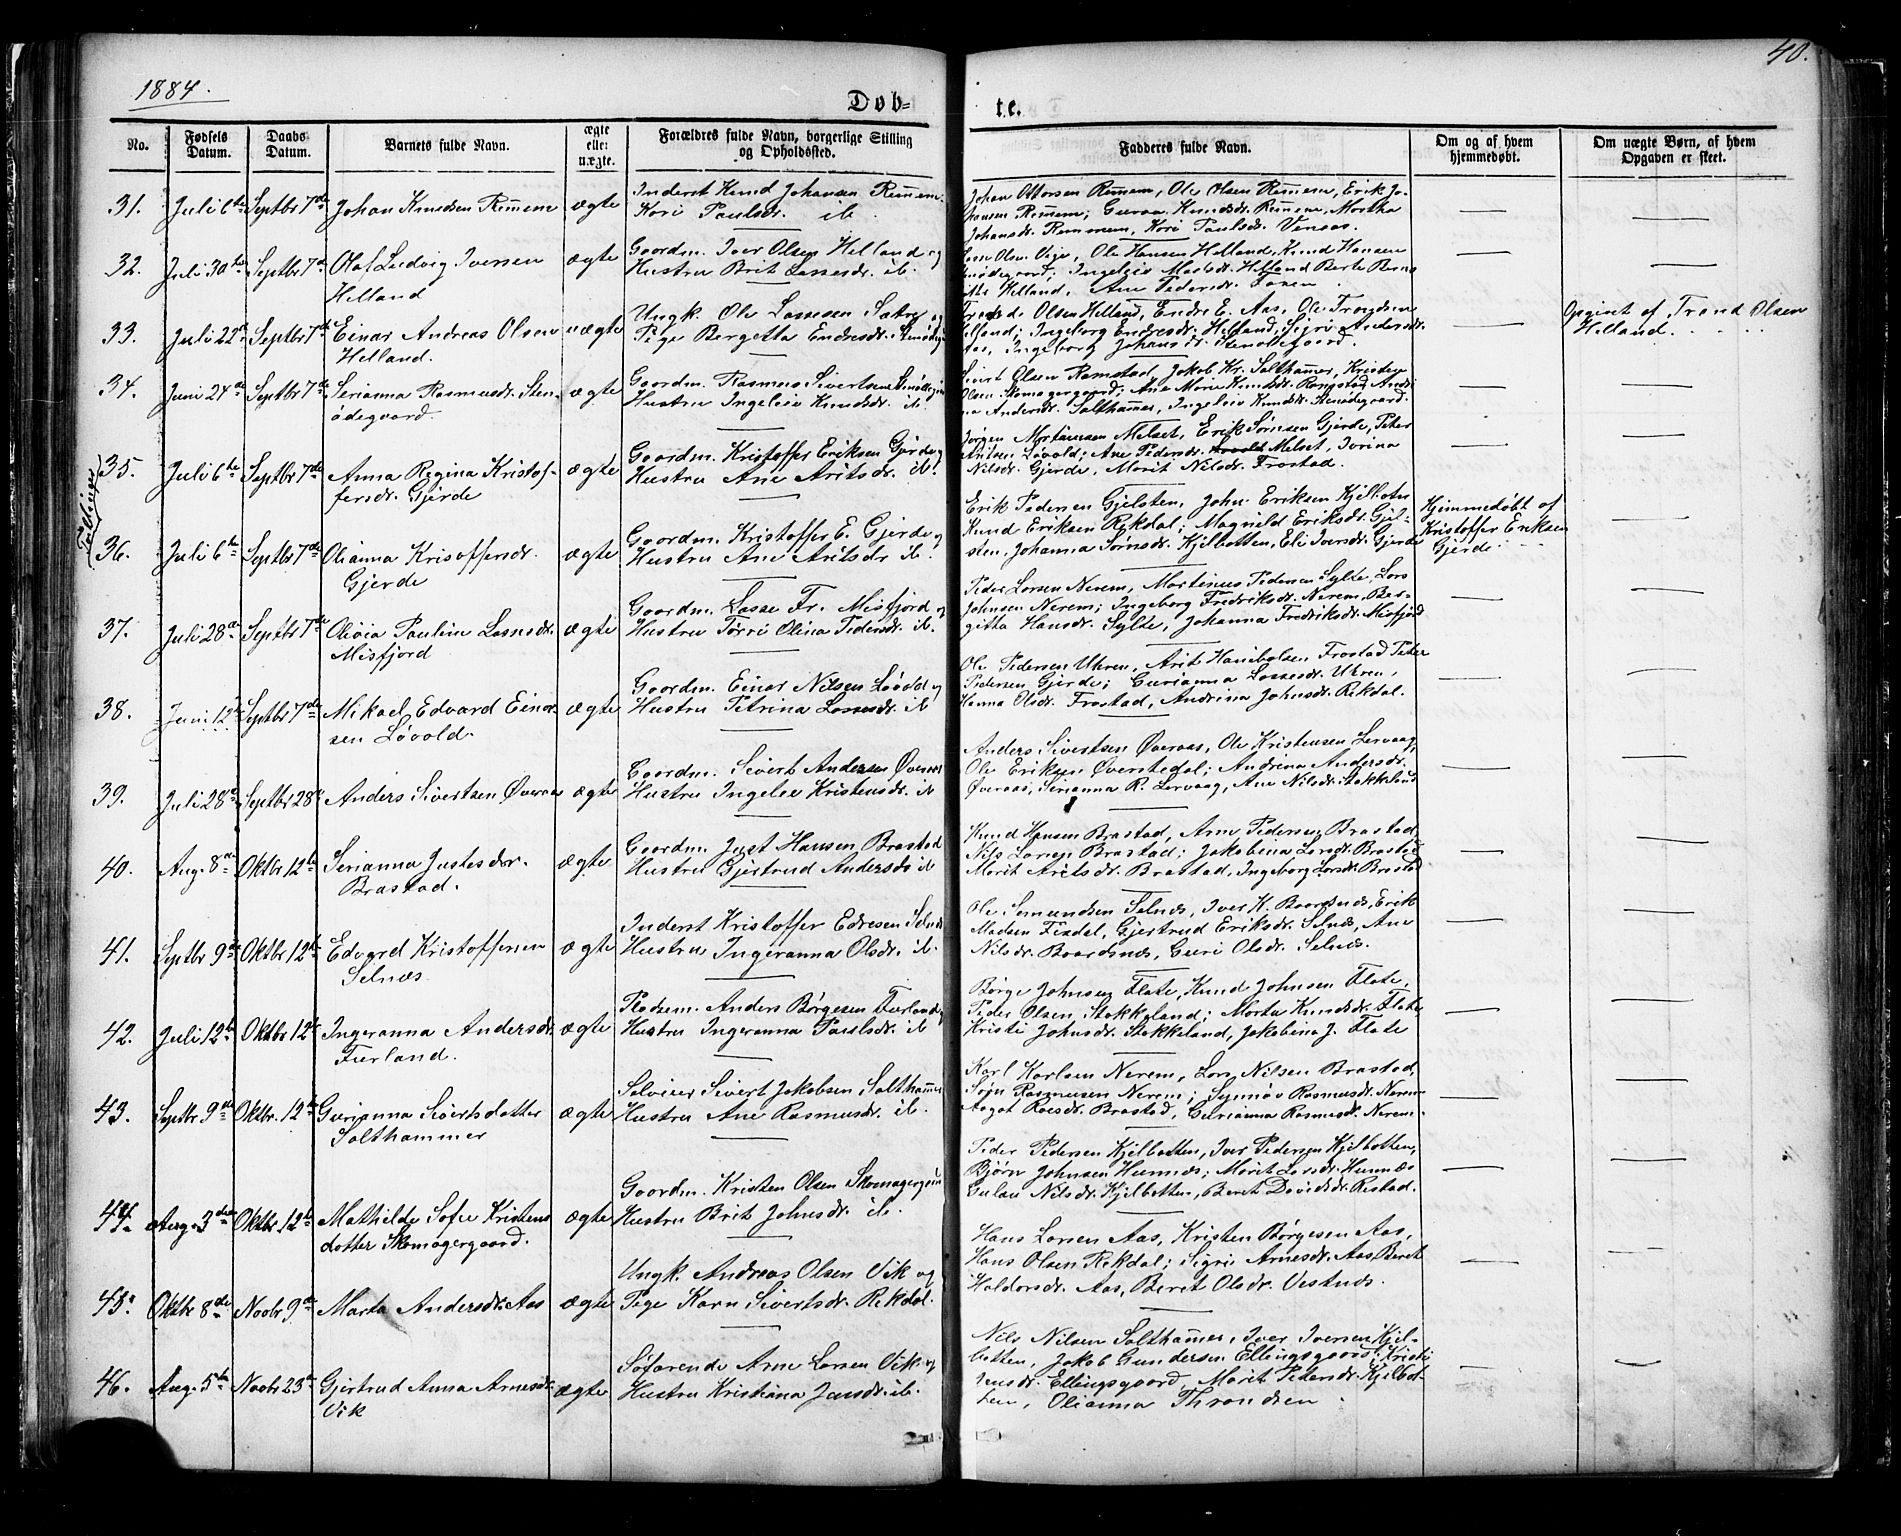 1884.
40.
Døb-
te.
No.
Fødsels Datum.
Daabs Datum.
Barnets fulde Navn.
ægte eller uægte.
Forældres fulde Navn, borgerlige Stilling og Opholdssted.
Fadderes fulde Navn.
Om og af hvem hjemmedøbt.
Om uægte Børn, af hvem Opgaven er skeet.
31. Juli 6te Septbr 7de Johan Knudsen Remmem ægte
Inderst Knud Johansen Remmem
Kari Paulsdr. ib.
Johan Ottorsen Remmem, Ole Olsen Remmem, Erik Jo-
hansen Remmem; Guroa Knudsdr. Remmem, Martha
Johansdr. Remmem, Kari Paulsdr.
32. Juli 30te Septbr 7de Olaf Ludvig Iversen
Helland
ægte
Gaardm. Iver Olsen Helland og
Hustru Brit Lassesdr. ib.
Olsen Vige, Ole Hansen Helland, Knud Hansen
Ingeleiv Madsdr. Helland
Helland, Ane Pedersdr.
33. Juli 22de Septbr 7de Einar Andreas Olsen
Helland.
uægte
Ungk. Ole Lassesen Sætre og
Pige Bergetta Endresdr.
Olsen Helland, Endre E. Aas, Ole Trondsen
Helland; Ingeborg Endresdr. Helland, Sigri Andersdr.
Aas, Ingeborg Johansdr. Stenødegaard.
Opgivet af Trond Olsen
Helland.
34. Juni 24de Septbr 7de Serianna Rasmusdr. Sten-
ødegaard.
ægte
Gaardm. Rasmus Sivertsen Stenødegaard
Hustru Ingeleiv Knudsdr. ib.
Sivert Olsen Ramstad, Jakob Kr. Salthammer, Kristen
Olsen Skomagergaard; Ane Marie Knudsdr. Ramstad, Andri-
na Andersdr. Salthammer, Ingeleiv Knudsdr. Stenødegaard.
Tvillinger
35. Juli 6te Septbr 7de Anna Regina Kristof-
fersdr. Gjerde
ægte
Gaardm. Kristoffer Eriksen Gjerde og
Hustru Ane Aritsdr. ib.
Jørgen Mortensen Melset, Erik Sørnsen Gjerde, Peter
Aritsen Løvold; Ane Pedersdr. Melset, Ivrina
Nilsdr. Gjerde, Marit Nilsdr. Frostad.
36. Juli 6te Septbr 7de Olianna Kristoffersdr.
Gjerde
ægte
Gaardm. Kristoffer E. Gjerde og
Hustru Ane Aritsdr ib.
Erik Pedersen Gjelsten, John Eriksen Kjelbotn
Knud Eriksen Rekdal; Magnild Eriksdr. Gjel-
sten, Johanna Sørnsdr. Kjelbotten, Eli Iversdr. Gjerde
Hjemmedøbt af
Kristoffer Eriksen
Gjerde.
37. Juli 28de Septbr 7de Olivia Pauline Lassesdr.
Misfjord
ægte
Gaardm. Lasse Fr. Misfjord og
Hustru Olina Pedersdr. ib.
Peder Larsen Nerem, Martinus Pedersen Sylte, Lars
Johnsen Nerem; Ingeborg Fredriksdr. Nerem, Ber-
gitta Hansdr. Sylte, Johanna Fredriksdr. Misfjord
38. Juni 12te Septbr 7de Mikael Edvard Einar-
sen Løvold.
ægte
Gaardm. Einar Nilsen Løvold og
Hustru Petrina Lassesdr. ib
Ole Pedersen Uhren, Arit Hanibalsen Frostad Peder
Pedersen Gjerde; Gurianna Lassesdr. Uhren,
Hanna Olsdr. Frostad, Andrina Johnsdr. Rekdal.
39. Juli 28de Septbr 28de Anders Sivertsen Øveraas ægte
Gaardm. Sivert Andersen Øveraas
Hustru Ingeleiv Kristensdr. ib
Anders Sivertsen Øveraas, Ole Kristensen Lervaag,
Ole Eriksen Øverstedal; Andrina Andersdr.
Øveraas, Serianna R. Lervaag, Ane Nilsdr. Stokkeland
40. Aug. 8de Oktbr 12te Serianna Justesdr.
Brastad.
ægte
Gaardm. Just Hansen Brastad
Hustru Gjertrud Andersdr ib
Knud Hansen Brastad, Arne Pedersen Brastad,
Nils Larsen Brastad; Jakobina Larsdr. Brastad
Marit Aritsdr. Brastad, Ingeborg Larsdr. Brastad
41. Septbr 9de Oktbr 12te Edvard Kristoffersen
Selnæs.
ægte
Inderst Kristoffer Edresen Selnæs
Hustru Ingeranna Olsdr. ib.
Ole Semundsen Selnæs, Iver K. Baardsnæs, Erik
Madsen Fixdal, Gjertrud Eriksdr. Selnæs, Ane
Nilsdr. Baardsnæs, Guri Olsdr. Selnæs.
42. Juli 12te Oktbr 12te Ingeranna Andersdr.
Furland.
ægte
Pladsm. Anders Børgesen Furland og
Hustru Ingeranna Paulsdr. ib
Børge Johnsen Flate, Knud Johnsen Flate,
Peder Olsen Stokkeland; Marta Knudsdr. Flate
Kristi Johnsdr. Stokkeland, Jakobina J. Flate
43. Septbr 9de Oktbr. 12te Gurianna Sivertsdatter
Salthammer
ægte
Selveier Sivert Jakobsen Salthammer
Hustru Ane Rasmusdr. ib.
Karl Karlsen Nerem, Lars Nilsen Brastad,
Rasmussen Nerem; Synnøv Rasmusdr. Nerem
Aagot Brastad, Gurianna Rasmusdr. Nerem.
44. Aug. 3die Oktbr. 12te Mathilde Sofie Kristens
datter Skomagergaard.
ægte
Gaardm. Kristen Olsen Skomagergaard
Hustru Brit Johnsdr. ib.
Peder Pedersen Kjelbotten, Iver Pedersen Kjelbotten,
Bjørn Johnsen Hunnæs; Marit Larsdr. Hunnæs
Nilsdr. Kjelbotten, Beret Davidsdr. Restad.
45. Oktbr 8de Novbr 9de Marta Andersdr. Aas ægte
Ungk. Andreas Olsen Vik og
Pige Karn Sivertsdr. Rekdal.
Hans Larsen Aas, Kristen Børgesen Aas,
Hans Olsen Rekdal; Sigri Arnesdr. Aas, Beret
Haldorsdr. Aas, Beret Olsdr. Vestnæs.
46. Aug. 5te Novbr 23de Gjertrud Anna Arnesdr.
Vik
ægte
Søfarende Arne Larsen Vik og
Hustru Kristiana Jensdr. ib.
Nils Nilsen Salthammer, Iver Iversen Kjel-
botten, Jakob Gundersen Ellingsgaard; Kristi
Jensdr. Ellingsgaard, Marit Petersdr. Kjelbot-
ten, Olianna Throndsen.